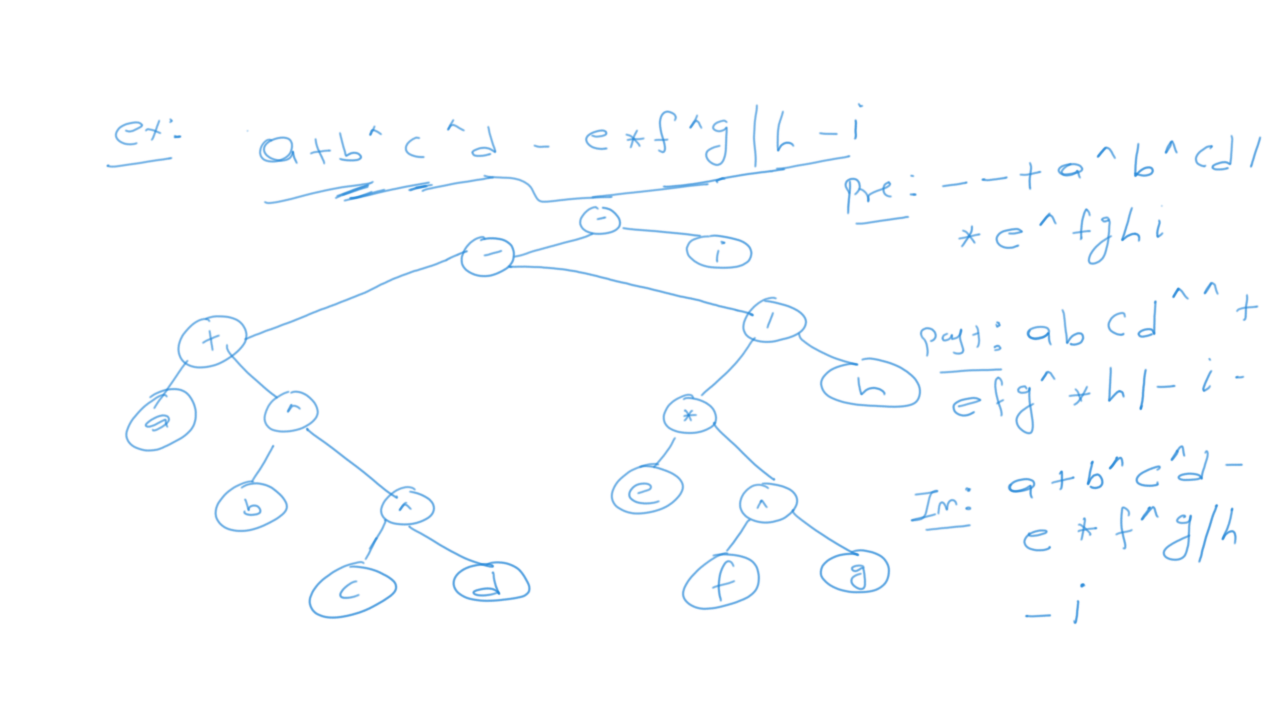 ex: a+b^c^d - e*f^g/h-i
-
- i
+ /
a ^ * h
b ^ e ^
c d f g
Pre: --+a^b^cd/
*e^fghi
Post: abcd^^+
efg^*h/-i-
In: a+b^c^d-
e*f^g/h
-i